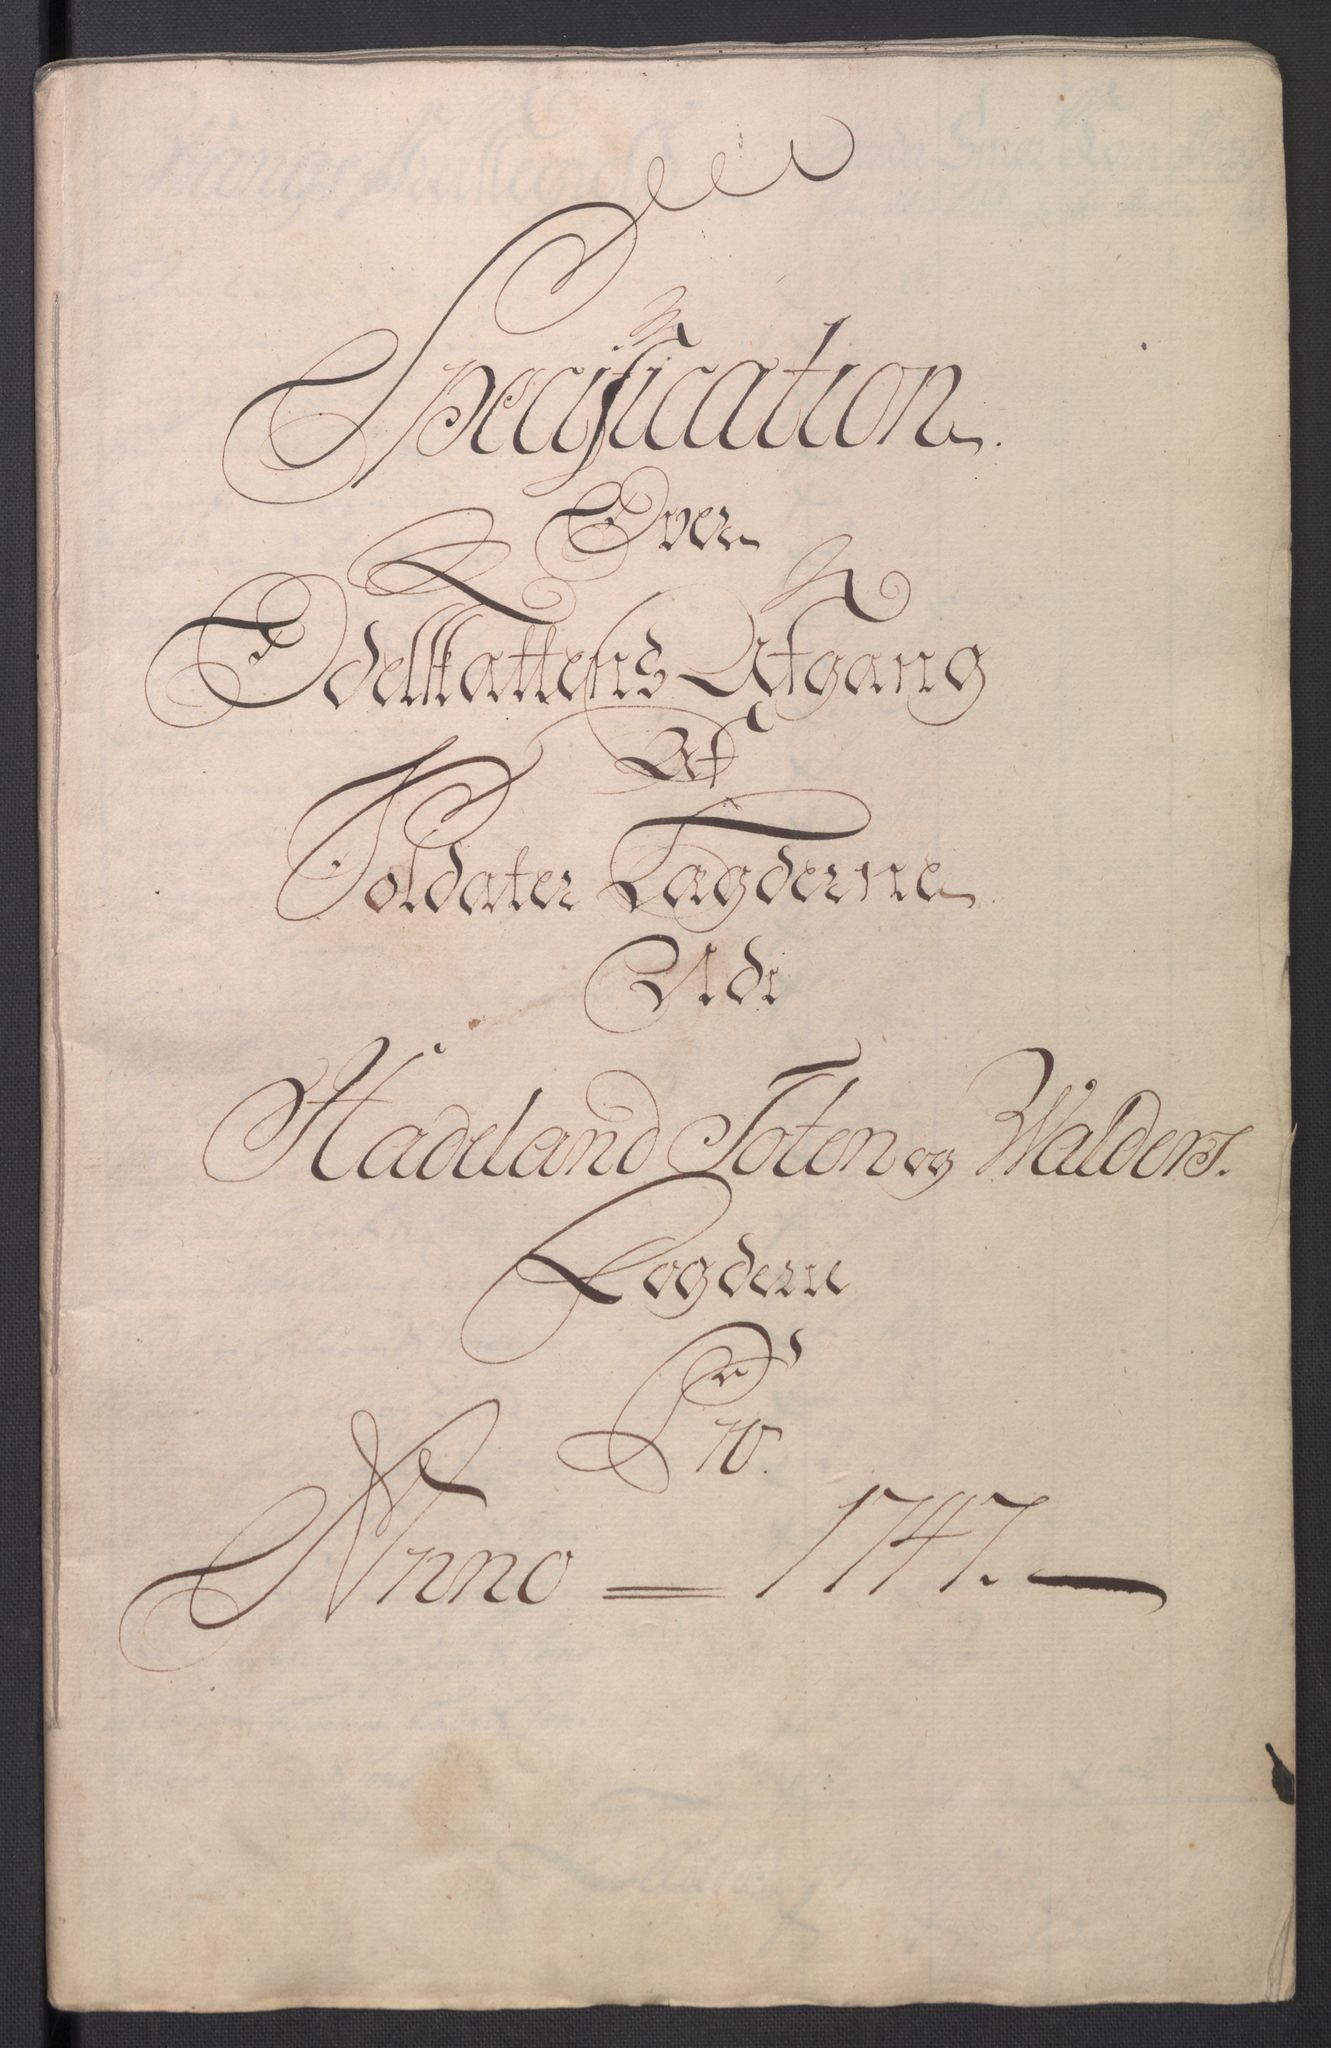 Specification
Over
Odelskattens Afgang
Af
Soldater Lægderne
Udi
Hadeland Toten og Walders.
Fogderie
Pro.
Anno = 1747.